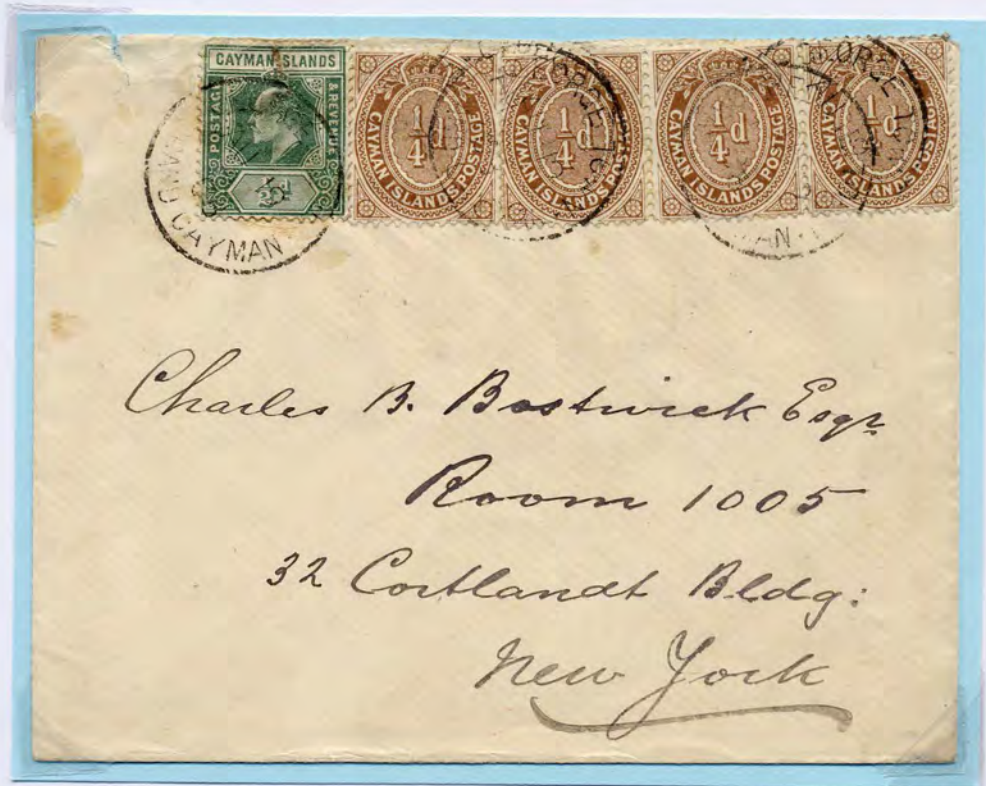 CAYMAN ISLANDS
POSTAGE & REVENUE
½d
¼d
CAYMAN ISLANDS POSTAGE
¼d
CAYMAN ISLANDS POSTAGE
¼d
CAYMAN ISLANDS POSTAGE
¼d
CAYMAN ISLANDS POSTAGE
GRAND CAYMAN
Charles B. Bostwick Esqr.
Room 1005
32 Cortlandt Bldg:
New York